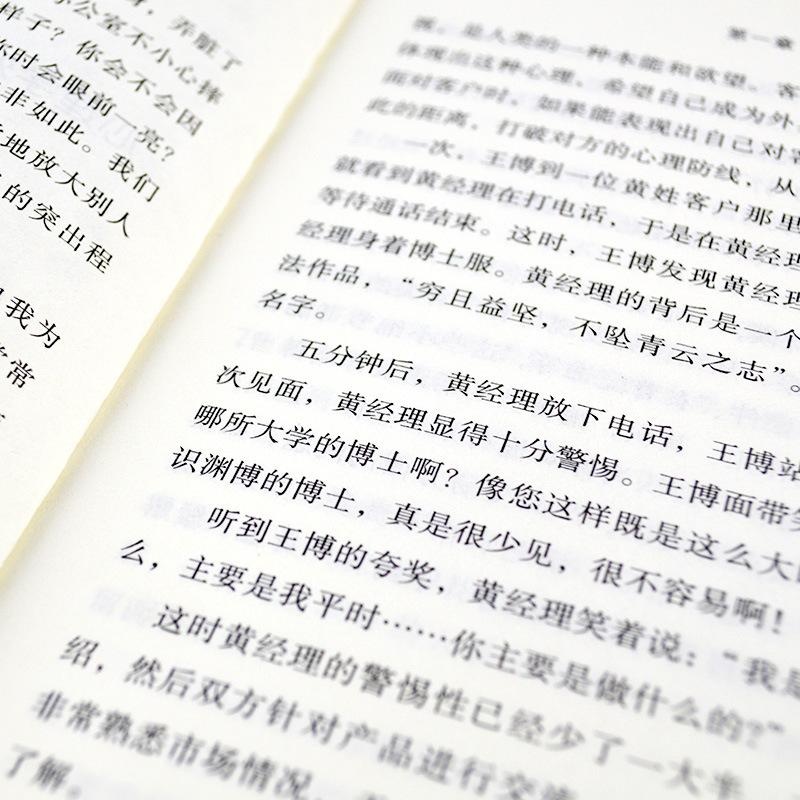 身，弄脏了
办公室不小心摔
样子？你会不会因
你时会眼前一亮？
非如此。我们
地放大别人
的突出程
我为
常
第一章
惧，是人类的一种本能和欲望。客
体现出这种心理，希望自己成为外
面对客户时，如果能表现出自己对客
此的距离，打破对方的心理防线，从
一次，王博到一位黄姓客户那里
就看到黄经理在打电话，于是在黄经理
等待通话结束。这时，王博发现黄经理
经理身着博士服。黄经理的背后是一个
法作品，“穷且益坚，不坠青云之志”。
名字。
五分钟后，黄经理放下电话，王博站
次见面，黄经理显得十分警惕。王博面带笑
哪所大学的博士啊？像您这样既是这么大
识渊博的博士，真是很少见，很不容易啊！
听到王博的夸奖，黄经理笑着说：“我是
么，主要是我平时……你主要是做什么的？”
这时黄经理的警惕性已经少了一大半
绍，然后双方针对产品进行交流
非常熟悉市场情况，
了解。